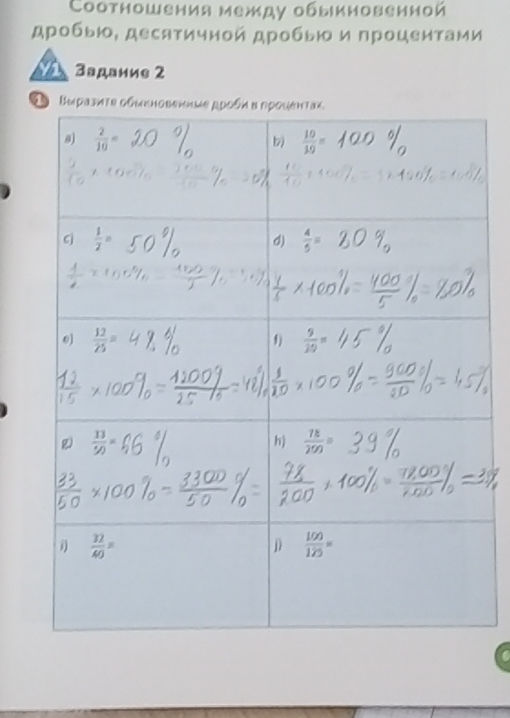 Соотношения между обыкновенной
дробью, десятичной дробью и процентами
У1 Задание 2
1 Выразите обыкновенные дроби в процентах.
a) 2/10 = 20 % b) 10/10 = 100 %
2/10 × 100% = 200/10 % = 20% 10/10 × 100% = 1 × 100% = 100%
c) 1/2 = 50 % d) 4/5 = 80 %
1/2 × 100% = 100/2 % = 50% 4/5 × 100% = 400/5 % = 80%
e) 12/25 = 48 % f) 9/20 = 45 %
12/25 × 100% = 1200/25 % = 48% 9/20 × 100% = 900/20 % = 45%
g) 33/50 = 66 % h) 78/200 = 39 %
33/50 × 100% = 3300/50 % = 78/200 × 100% = 7800/200 % = 39%
i) 32/40 = j) 100/125 =